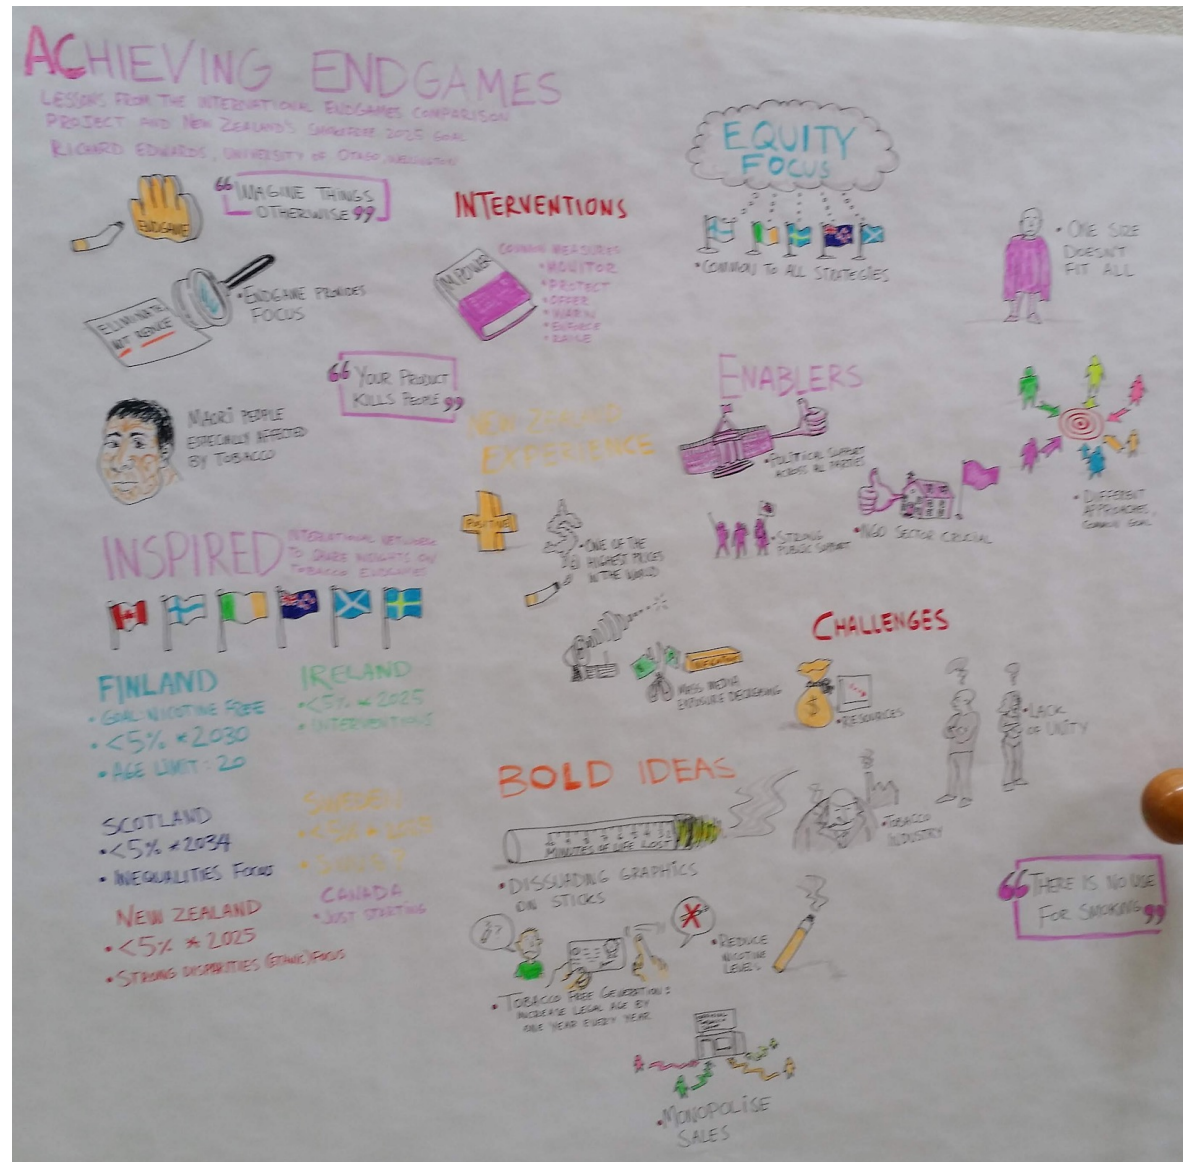 ACHIEVING ENDGAMES
LESSONS FROM THE INTERNATIONAL ENDGAMES COMPARISON
PROJECT AND NEW ZEALAND'S SMOKEFREE 2025 GOAL
RICHARD EDWARDS, UNIVERSITY OF OTAGO, WELLINGTON
ENDGAME
"IMAGINE THINGS
OTHERWISE"
ELIMINATE
NOT REDUCE
• ENDGAME PROVIDES
FOCUS
"YOUR PRODUCT
KILLS PEOPLE"
MAORI PEOPLE
ESPECIALLY AFFECTED
BY TOBACCO
INSPIRED
INTERNATIONAL NETWORK
TO SHARE INSIGHTS ON
TOBACCO ENDGAMES
FINLAND
• GOAL NICOTINE FREE
• <5% * 2030
• AGE LIMIT: 20
IRELAND
• <5% * 2025
• INTERVENTIONS
SCOTLAND
• <5% * 2034
• INEQUALITIES FOCUS
SWEDEN
• <5% * 2025
• SNUS?
CANADA
• JUST STARTING
NEW ZEALAND
• <5% * 2025
• STRONG DISPARITIES (ETHNIC) FOCUS
INTERVENTIONS
MPOWER
COMMON MEASURES
• MONITOR
• PROTECT
• OFFER
• WARN
• ENFORCE
• RAISE
NEW ZEALAND
EXPERIENCE
POSITIVE
• ONE OF THE
HIGHEST PRICES
IN THE WORLD
MASS MEDIA
EXPOSURE DECREASING
BOLD IDEAS
MINUTES OF LIFE LOST
• DISSUADING GRAPHICS
ON STICKS
• TOBACCO FREE GENERATION:
INCREASE LEGAL AGE BY
ONE YEAR EVERY YEAR
• REDUCE
NICOTINE
LEVELS
• MONOPOLISE
SALES
EQUITY
FOCUS
• COMMON TO ALL STRATEGIES
• ONE SIZE
DOESN'T
FIT ALL
ENABLERS
• POLITICAL SUPPORT
ACROSS ALL PARTIES
• STRONG
PUBLIC SUPPORT
• NGO SECTOR CRUCIAL
• DIFFERENT
APPROACHES,
COMMON GOAL
CHALLENGES
• RESOURCES
• LACK
OF UNITY
• TOBACCO
INDUSTRY
"THERE IS NO USE
FOR SMOKING"